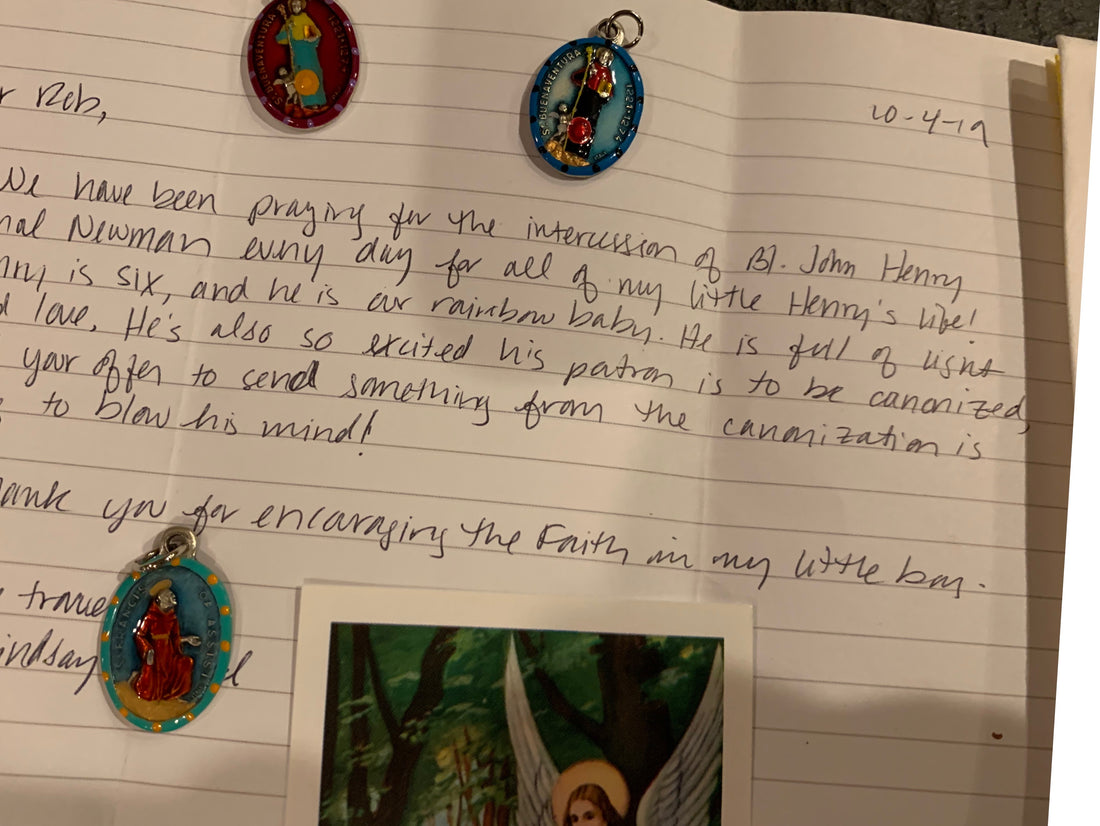 S. BUENAVENTURA
S. BUENAVENTURA 1221-1274
r Reb,
10-4-19
We have been praying for the intercession of Bl. John Henry
nal Newman every day for all of my little Henry's life!
nry is six, and he is our rainbow baby. He is full of light
d love. He's also so excited his patron is to be canonized,
your offer to send something from the canonization is
to blow his mind!
ank you for encouraging the Faith in my little boy.
trave
indsay
OF ASSISI